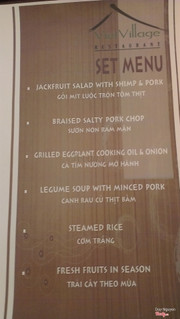 Village
RESTAURANT
SET MENU
JACKFRUIT SALAD WITH SHIMP & PORK
GỎI MÍT LUỘC TRỘN TÔM THỊT
BRAISED SALTY PORK CHOP
SƯỜN NON RAM MẶN
GRILLED EGGPLANT COOKING OIL & ONION
CÀ TÍM NƯỚNG MỠ HÀNH
LEGUME SOUP WITH MINCED PORK
CANH RAU CỦ THỊT BẰM
STEAMED RICE
CƠM TRẮNG
FRESH FRUITS IN SEASON
TRÁI CÂY THEO MÙA